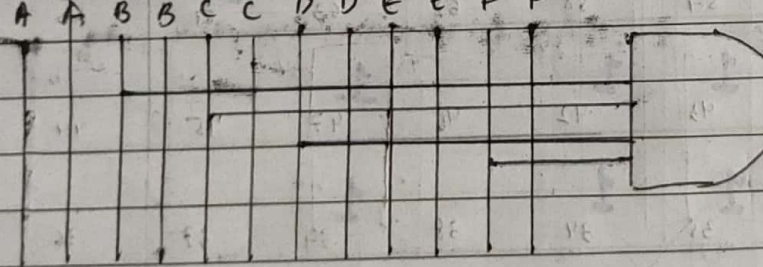 A A B B C C D D E E F F